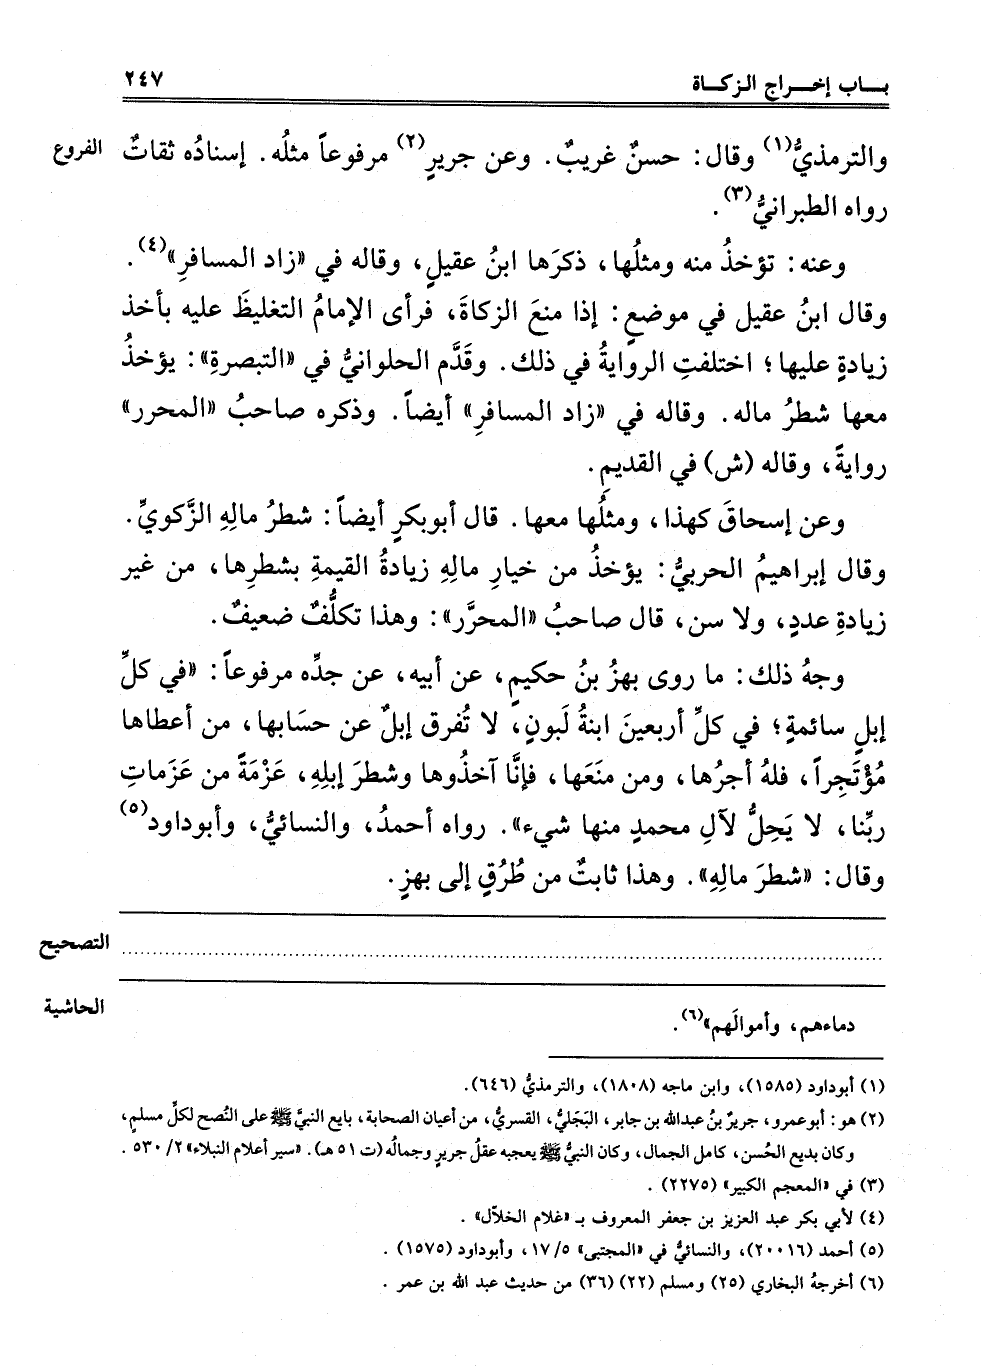 باب إخراج الزكاة ٢٤٧
والترمذيُّ(١) وقال: حسنٌ غريبٌ. وعن جريرٍ(٢) مرفوعاً مثلُه. إسنادُه ثقاتٌ الفروع
رواه الطبرانيُّ(٣).
وعنه: تؤخذُ منه ومثلُها، ذكرَها ابنُ عقيلٍ، وقاله في «زاد المسافرِ»(٤).
وقال ابنُ عقيل في موضعٍ: إذا منعَ الزكاةَ، فرأى الإمامُ التغليظَ عليه بأخذ
زيادةٍ عليها؛ اختلفتِ الروايةُ في ذلك. وقَدَّم الحلوانيُّ في «التبصرةِ»: يؤخذُ
معها شطرُ ماله. وقاله في «زاد المسافرِ» أيضاً. وذكره صاحبُ «المحرر»
روايةً، وقاله (ش) في القديمِ.
وعن إسحاقَ كهذا، ومثلُها معها. قال أبوبكرٍ أيضاً: شطرُ مالِهِ الزَّكويِّ.
وقال إبراهيمُ الحربيُّ: يؤخذُ من خيارِ مالِهِ زيادةُ القيمةِ بشطرِها، من غير
زيادةِ عددٍ، ولا سن، قال صاحبُ «المحرَّر»: وهذا تكلُّفٌ ضعيفٌ.
وجهُ ذلك: ما روى بهزُ بنُ حكيمٍ، عن أبيه، عن جدِّه مرفوعاً: «في كلِّ
إبلٍ سائمةٍ؛ في كلِّ أربعينَ ابنةُ لَبونٍ، لا تُفرق إبلٌ عن حسَابها، من أعطاها
مُؤْتَجِراً، فلهُ أجرُها، ومن منَعَها، فإنَّا آخذُوها وشطرَ إبلِهِ، عَزْمَةً من عَزَماتِ
ربِّنا، لا يَحِلُّ لآلِ محمدٍ منها شيء». رواه أحمدُ، والنسائيُّ، وأبوداود(٥)
وقال: «شطرَ مالِهِ». وهذا ثابتٌ من طُرُقٍ إلى بهزٍ.
التصحيح
الحاشية
دماءهم، وأموالَهم»(٦).
(١) أبوداود (١٥٨٥)، وابن ماجه (١٨٠٨)، والترمذيُّ (٦٤٦).
(٢) هو: أبوعمرو، جريرُ بنُ عبدالله بن جابر، البَجَليُّ، القسريُّ، من أعيان الصحابة، بايع النبيَّ ﷺ على النُصح لكلِّ مسلمٍ،
وكان بديع الحُسن، كامل الجمال، وكان النبيُّ ﷺ يعجبه عقلُ جريرٍ وجمالُه (ت ٥١ هـ). «سير أعلام النبلاء» ٢/ ٥٣٠ .
(٣) في «المعجم الكبير» (٢٢٧٥) .
(٤) لأبي بكر عبد العزيز بن جعفر المعروف بـ «غلام الخلال» .
(٥) أحمد (٢٠٠١٦)، والنسائيُّ في «المجتبى» ٥/ ١٧، وأبوداود (١٥٧٥) .
(٦) أخرجهُ البخاري (٢٥) ومسلم (٢٢) (٣٦) من حديث عبد الله بن عمر .